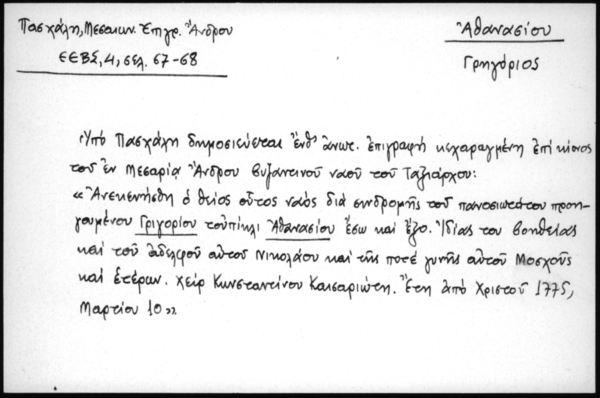 Πασχάλη, Μεσαιων. Ἐπιγρ. Ἄνδρου
ΕΕΒΣ, 4, σελ. 67-68
Ἀθανασίου
Γρηγόριος
Ὑπό Πασχάλη δημοσιεύεται ἔνθ' ἄνωτ. ἐπιγραφή κεχαραγμένη ἐπί κίονος
τοῦ ἐν Μεσαρίᾳ Ἄνδρου βυζαντινοῦ ναοῦ τοῦ Ταξιάρχου:
« Ἀνεκενήσθη ὁ θεῖος οὗτος ναός διά σινδρομῆς τοῦ πανοσιωτάτου προη-
γουμένου Γριγορίου τοὐπίκλι Ἀθανασίου ἔσω καί ἔξο. Ἰδίας του βοηθείας
καί τοῦ ἀδελφοῦ αὐτοῦ Νικολάου καί τῆς ποτέ γυνῆς αὐτοῦ Μοσχοῦς
καί ἑτέρων. χείρ Κωνσταντίνου Καισαριώτη. Ἔτη ἀπό Χριστοῦ 1775,
Μαρτίου 10»